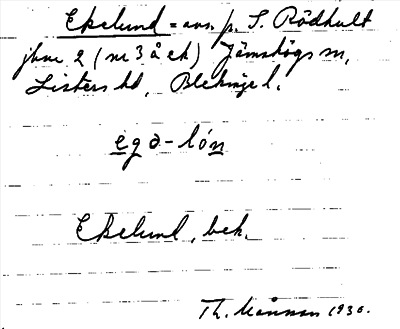 Ekelund = avs. p. S. Rödhult
jbm 2 (nr 3 å ek) Jämshögs sn,
Listers hd, Blekinge l.
ega-lón
Ekelund, bek.
Th. 1930.